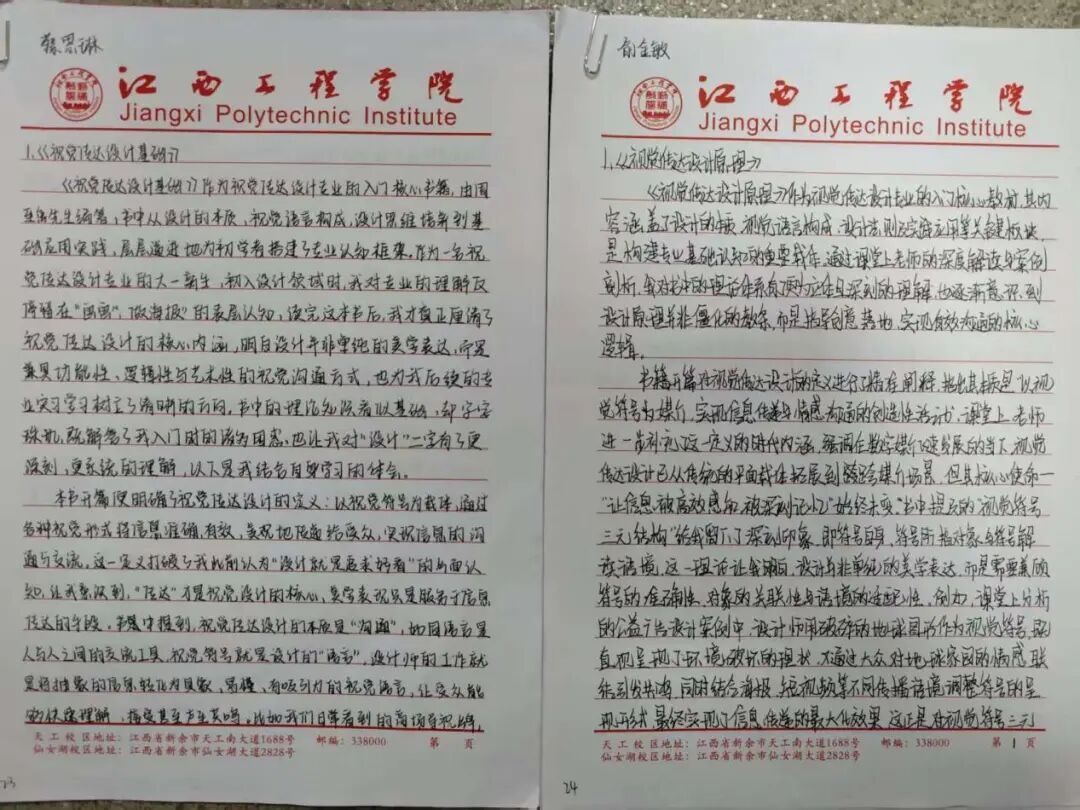 江西工程学院
Jiangxi Polytechnic Institute
1.《视觉传达设计基础》
《视觉传达设计基础》作为视觉传达设计专业的入门核心书籍,由周
书中从设计的本质、视觉语言构成、设计思维培养到基
础应用实践,层层递进地为初学者搭建了专业认知框架。作为一名视
觉传达设计专业的大一新生,初入设计领域时,我对专业的理解仅
停留在“画画”、做海报”的表层认知,读完这本书后,我才真正厘清了
视觉传达设计的核心内涵,明白设计并非单纯的美学表达,而是
兼具功能性、逻辑性与艺术性的视觉沟通方式,也为我后续的专
业学习树立了清晰的方向。书中的理论知识看似基础,却字字
珠玑,既解答了我入门时的诸多困惑,也让我对“设计”二字有了更
深刻、更系统的理解,以下是我结合自身学习的体会。
本书开篇便明确了视觉传达设计的定义:以视觉符号为载体,通过
各种视觉形式将信息准确、有效、美观地传递给受众,实现信息的沟
通与交流。这一定义打破了我此前认为“设计就是追求好看”的片面认
知,让我意识到,“传达”才是视觉设计的核心,美学表现只是服务于信息
传达的手段。书中提到,视觉传达设计的本质是“沟通”,如同语言是
人与人之间的交流工具,视觉符号就是设计的“语言”,设计师的工作就
是将抽象的信息转化为具象、易懂、有吸引力的视觉语言,让受众能
够快速理解、接受甚至产生共鸣。比如我们日常看到的商场导视牌,
天工校区地址:江西省新余市天工南大道1688号 邮编:338000 第 页
仙女湖校区地址:江西省新余市仙女湖大道2828号
23
江西工程学院
Jiangxi Polytechnic Institute
1.《视觉传达设计原理》
《视觉传达设计原理》作为视觉传达设计专业的入门核心教材,其内
容涵盖了设计的本质、视觉语言构成、设计法则及实践应用等关键板块,
是构建专业基础认知的重要载体。通过课堂上老师的深度解读与案例
剖析,我对书中的理论体系有了更深刻的理解,也逐渐意识到
设计原理并非僵化的教条,而是指导创意落地、实现有效沟通的核心
逻辑。
书籍开篇对视觉传达设计的定义进行了精准阐释,指出其本质是“以视
觉符号为媒介,实现信息传递与情感沟通的创造性活动”。课堂上,老师
进一步补充了这一定义的时代内涵,强调在数字媒介飞速发展的当下,视觉
传达设计已从传统的平面载体拓展到跨媒介场景,但其核心使命—
“让信息被高效感知、被深刻记忆”始终未变。书中提及的“视觉符号
三元结构”给我留下了深刻印象,即符号自身、符号所指对象与符号解
读语境,这一理论让我明白,设计并非单纯的美学表达,而是需要兼顾
符号的准确性、对象的关联性与语境的适配性。例如,课堂上分析
的公益广告设计案例中,设计师用破碎的地球图形作为视觉符号,既
直观呈现了环境破坏的现状,又通过大众对地球家园的情感联
结引发共鸣,同时结合海报、短视频等不同传播语境调整符号的呈
现形式,最终实现了信息传递的最大化效果。这正是对视觉符号三元
天工校区地址:江西省新余市天工南大道1688号 邮编:338000 第 1 页
仙女湖校区地址:江西省新余市仙女湖大道2828号
24